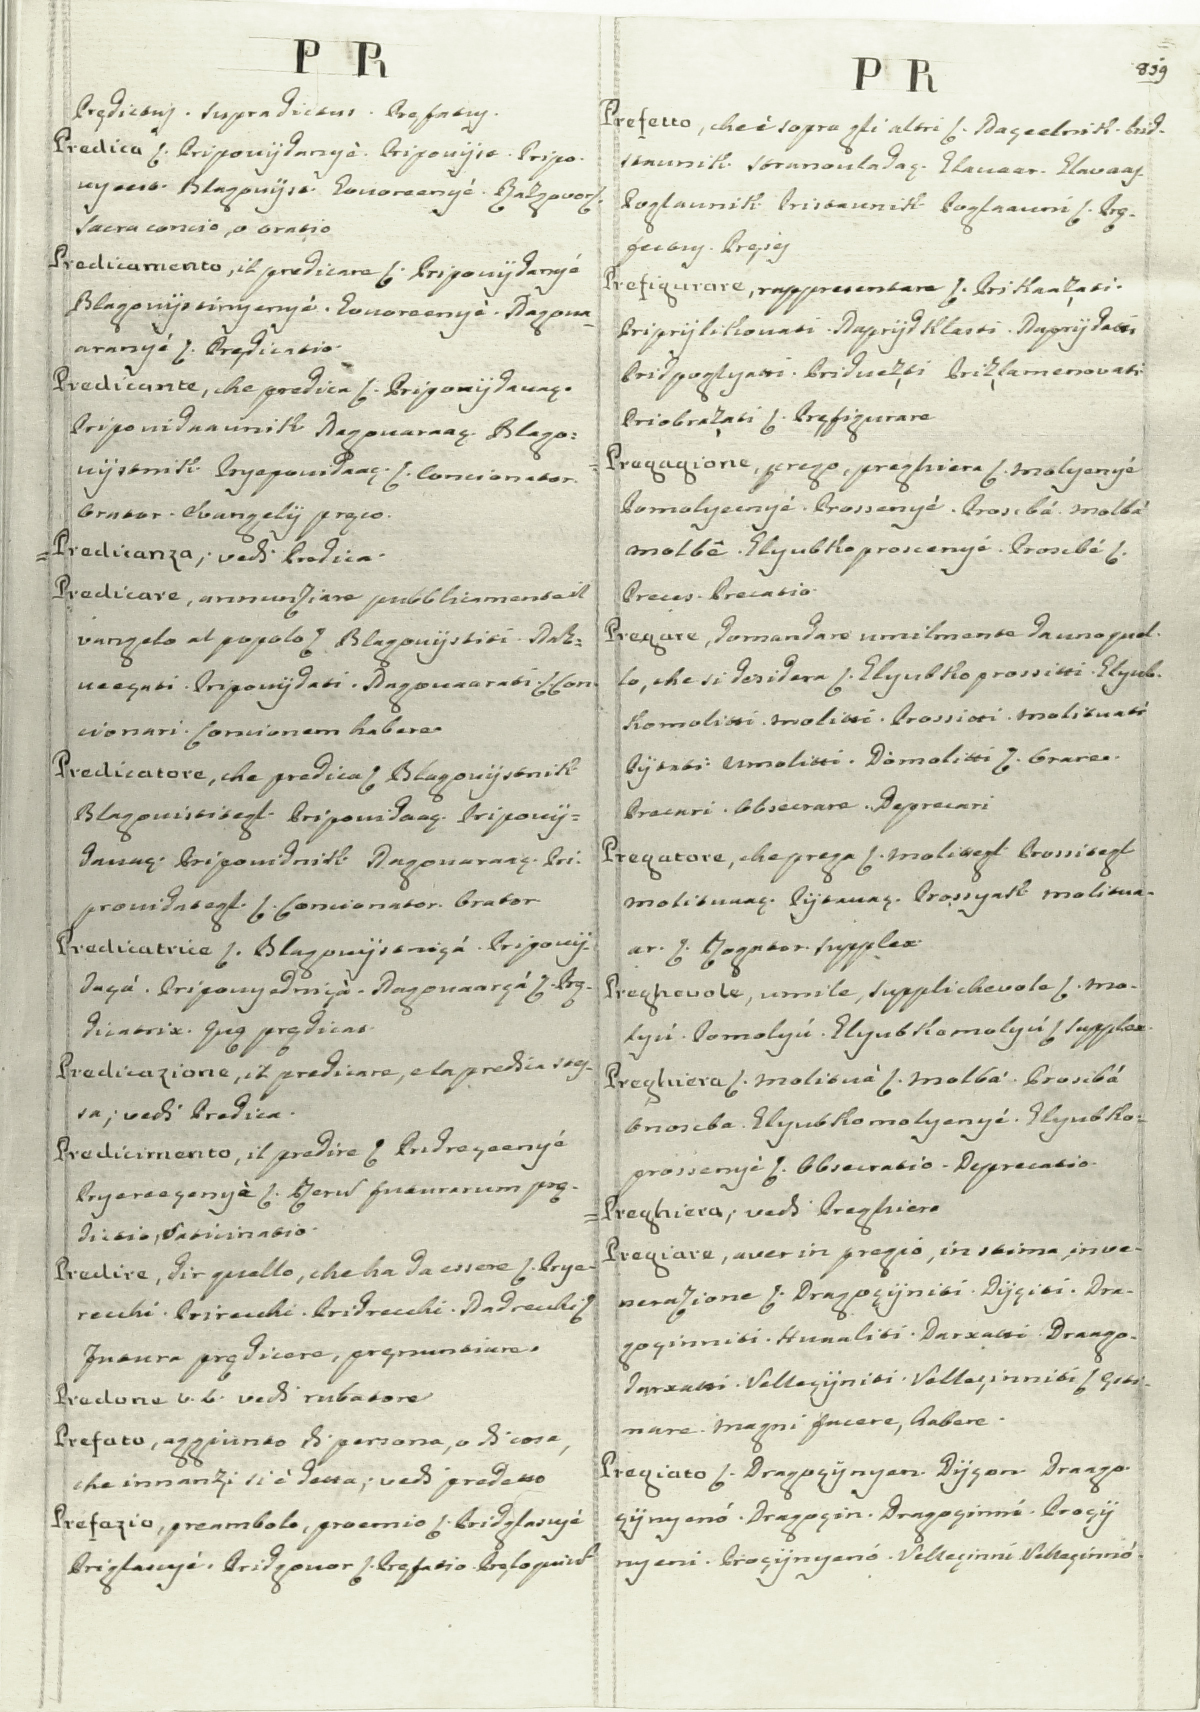 P R
Prędictus. Supradictus. Pręfatus.
Predica ζ. Pripovijdanyè. Pripovijst. Pripo-
vijest. Blagovijst. Govoreenyé. Razgovor ζ.
Sacra concio, o oratio
Predicamento, il predicare ζ. Pripovijdanyé
Blagovijstinyenyé. Govoreenyé. Dagova-
aranyé ζ. Prędicatio.
Predicante, che predica ζ. Pripovijdavaç.
Pripovidaavnik Dagovaraaç. Blago=
vijstnik Pryepovidaaç. ζ. Concionator.
Orator. Evangelij pręco.
= Predicanza; vedi Predica.
Predicare, annunziare pubblicamente il
vangelo al popolo ζ Blagovijstiti. Nak=
veeçati. Pripovijdati. Dagovaarati. ζ. Con-
cionari. Concionem habere.
Predicatore, che predica ζ Blagovijstnik
Blagovistitegl. Pripovidaaç. Pripovij=
davaç. Pripovidnik Dagovaraaç. Pri.
providategl. ζ. Concionator. Orator
Predicatrice ζ. Blagovijstniçá. Pripovij-
daçá. Pripovyedniçà. Dagovaarçá ζ. Prę-
dicatrix. Quę prędicat.
Predicazione, il predicare, e la predica stes-
sa; vedi Predica.
Predicimento, il predire ζ Pridreçeenyé
Pryereeçenyè ζ. Rerum futurarum prę-
dictio, Vaticinatio.
Predire, dir quello, che ha da essere ζ. Prye-
recchi. Prirecchi. Pridrecchi. Nadrecchi ζ
Futura prędicere, pręnuntiare.
Predone v. l. vedi rubatore
Prefato, aggiunto di persona, o di cosa,
che innanzi si è detta; vedi predetto
Prefazio, preambolo, proemio ζ. Pridglasyé
Priglasvyé. Pridgovor ζ. Pręfatio. Pręloquium
P R
859
Prefetto, che è sopra gli altri ζ. Naçeelnik. Prid-
stavnik Stranovladaç. Glavaar. Glavaaç
Poglavnik Pristavnik Poglaavni ζ. Prę-
fectus. Pręses
Prefigurare, rappresentare ζ. Prikaazati.
Priprijlikovati. Naprijdklasti. Naprijdatti
Pridpoglyatti. Pridvezti Prizlamenovati
Priobrazati ζ. Pręfigurare
= Pregagione, prego, preghiera ζ. Molyenyé
Pomolyeenyé. Prossenyé. Prosebá. Molbá
Molbê. Glyubkoproscenyé. Prosebé ζ.
Preces. Precatio.
Pregare, domandare umilmente da uno quel-
lo, che si desidera ζ. Glyubkoprossitti. Glyub-
komolitti. Molitti. Prossitti. Molitvati
Pijtati. Umolitti. Domolitti ζ. Orare.
Precari. Obsecrare. Deprecari
Pregatore, che prega ζ. Molitegl Prossitegl
Molitvaaç. Pijtavaç. Prossyak Molitva-
ar. ζ. Rogator. Supplex
Preghevole, umile, supplichevole ζ. Mo-
lyú. Pomolyú. Glyubkomolyú ζ Supplex.
Preghiera ζ. Molitvà ζ. Molbá. Prosibá
Onosiba. Glyubkomolyenyé. Glyubko=
prossenyé ζ. Obsecratio. Deprecatio.
= Preghiera; vedi Preghiero
Pregiare, aver in pregio, in stima, in ve-
nerazione ζ. Dragoçijniti. Dijçiti. Dra-
goçinniti. Hvaaliti. Darxatti. Draago-
darxatti. Velleçijniti. Velleçinniti ζ Ęsti-
mare. Magni facere, habere.
Pregiato ζ. Dragoçijnyen. Dijçon Draago-
çijnyenó. Dragoçin. Dragoçinni. Proçij
nyeni. Proçijnyenó. Velleçinni Velleçinnó.